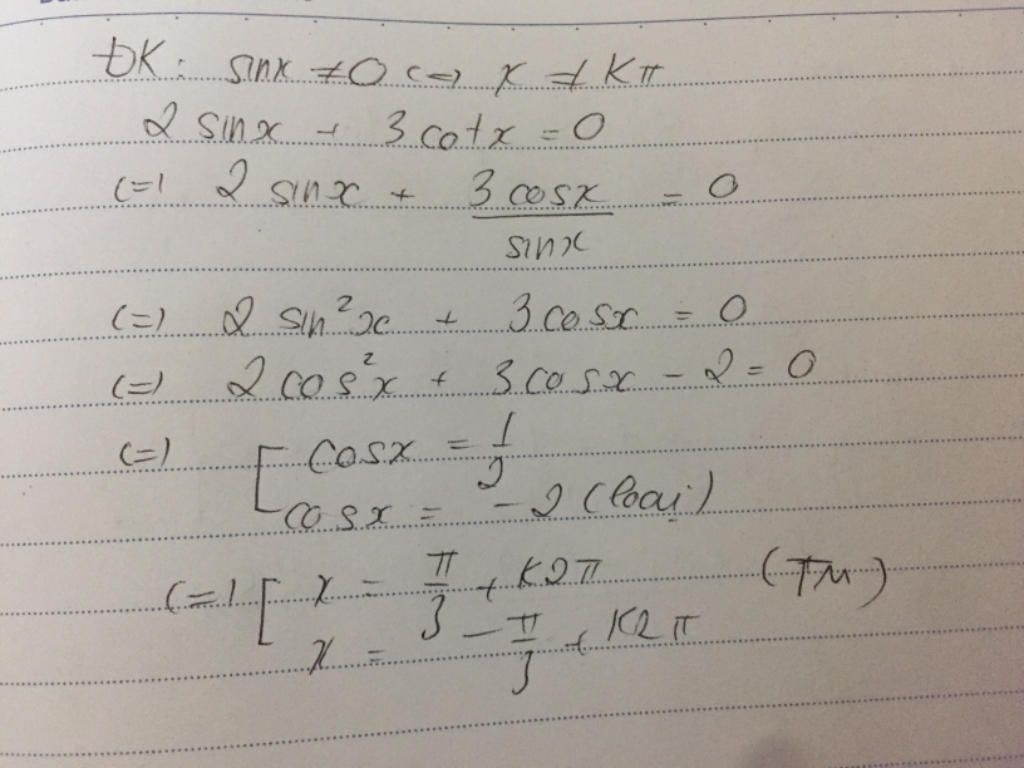 ĐK: sinx ≠ 0 <=> x ≠ Kπ
2 sinx + 3 cotx = 0
<=> 2 sinx + 3 cosx / sinx = 0
<=> 2 sin²x + 3 cosx = 0
<=> 2 cos²x + 3 cosx - 2 = 0
<=> [ cosx = 1/2
cosx = -2 (loại)
<=> [ x = π/3 + K2π (TM)
x = -π/3 + K2π